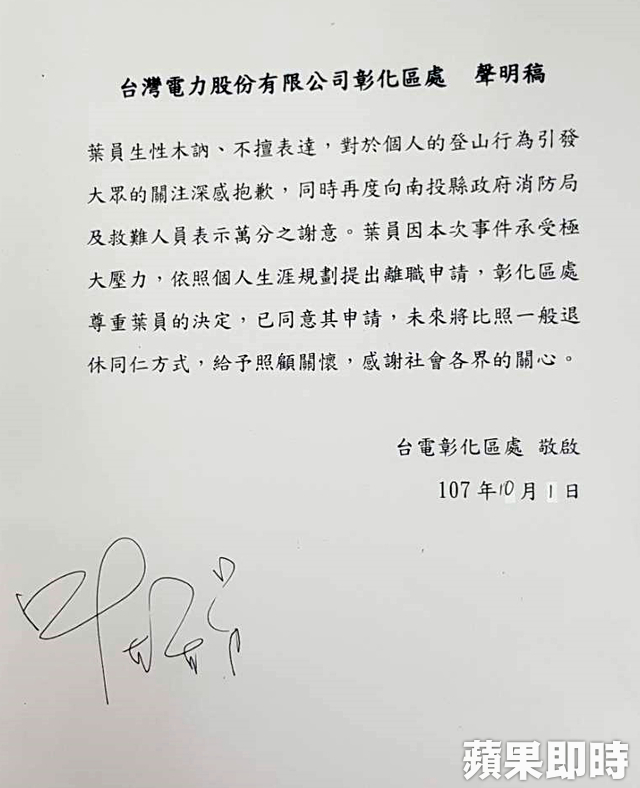 台灣電力股份有限公司彰化區處　聲明稿
葉員生性木訥、不擅表達，對於個人的登山行為引發
大眾的關注深感抱歉，同時再度向南投縣政府消防局
及救難人員表示萬分之謝意。葉員因本次事件承受極
大壓力，依照個人生涯規劃提出離職申請，彰化區處
尊重葉員的決定，已同意其申請，未來將比照一般退
休同仁方式，給予照顧關懷，感謝社會各界的關心。
台電彰化區處 敬啟
107 年10月1日
蘋果即時